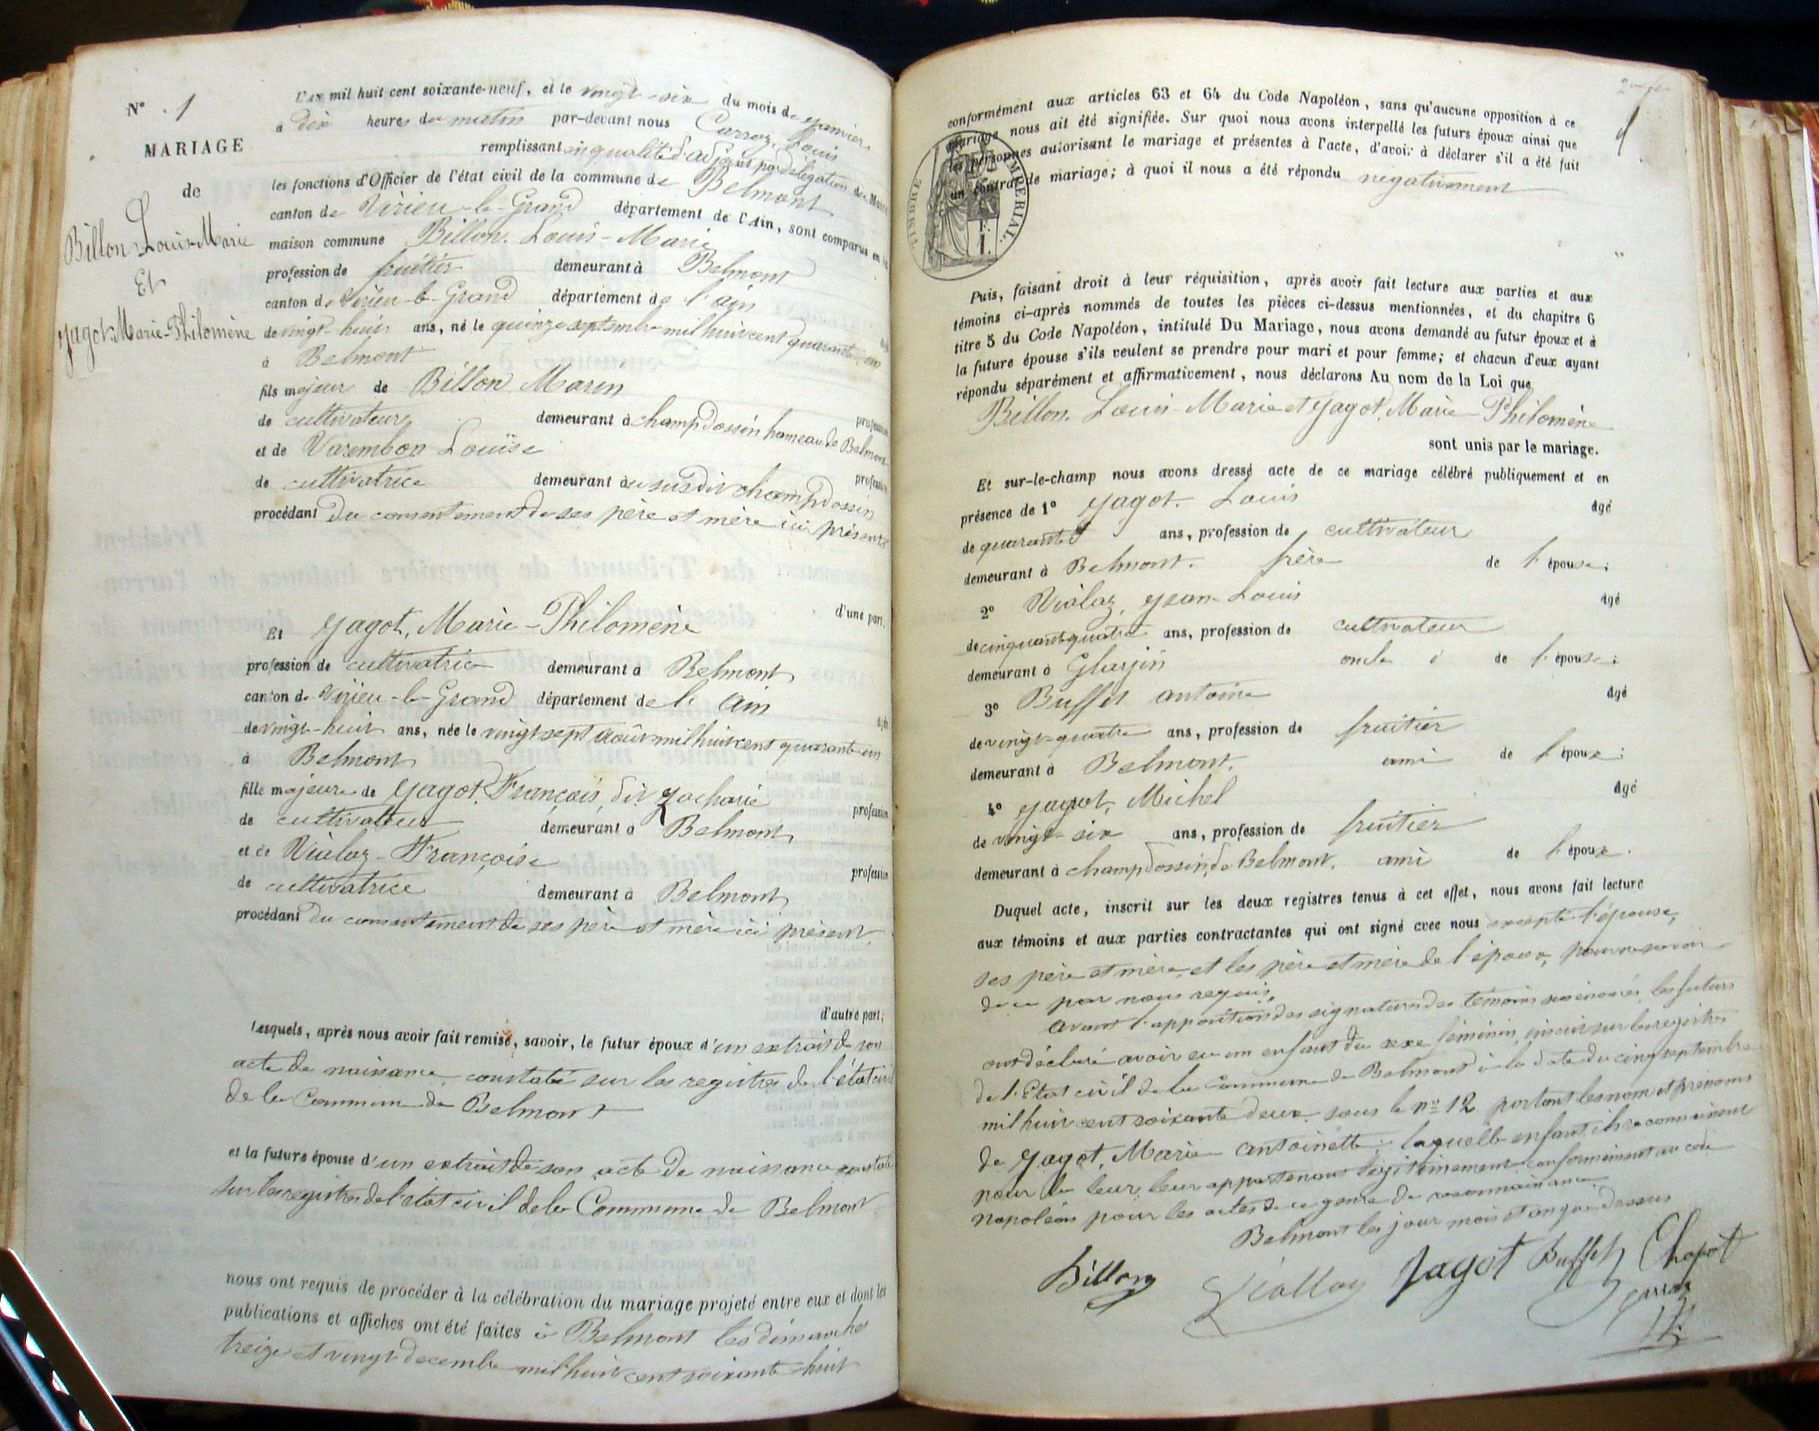 N° 1
MARIAGE
de
Billon Louis-Marie
Et
Jagot Marie-Philomène
L'an mil huit cent soixante-neuf, et le vingt-six du mois de janvier
à dix heures du matin par-devant nous Carraz, Louis
remplissant en qualité d'adjoint par délégation du Maire
les fonctions d'Officier de l'état civil de la commune de Belmont
canton de Virieu-le-Grand département de l'Ain, sont comparus en la
maison commune Billon, Louis-Marie
profession de fruitier demeurant à Belmont
canton de Virieu-le-Grand département de l'ain
de vingt-huit ans, né le quinze septembre mil huit cent quarante
à Belmont
fils majeur de Billon Marin
profession
de cultivateur demeurant à champdossin hameau de Belmont
et de Varembon Louise
profession
de cultivatrice demeurant au susdit champdossin
procédant du consentement de ses père et mère ici présents
d'une part,
Et Jagot, Marie-Philomène
profession de cultivatrice demeurant à Belmont
canton de Virieu-le-Grand département de l'Ain
de vingt-huit ans, née le vingt sept août mil huit cent quarante un
à Belmont
fille majeure de Jagot, François, dit Zacharie
profession
de cultivateur demeurant à Belmont
et de Vialaz-Françoise
profession
de cultivatrice demeurant à Belmont
procédant du consentement de ses père et mère ici présent
d'autre part;
Lesquels, après nous avoir fait remise, savoir, le futur époux d'un extrait de son
acte de naissance, constaté sur les registres de l'état civil
de la Commune de Belmont
et la future épouse d'un extrait de son acte de naissance constaté
sur les registres de l'état civil de la Commune de Belmont
nous ont requis de procéder à la célébration du mariage projeté entre eux et dont les
publications et affiches ont été faites à Belmont les dimanches
treize et vingt decembre mil huit cent soixante-huit
conformément aux articles 63 et 64 du Code Napoléon, sans qu'aucune opposition à ce
mariage nous ait été signifiée. Sur quoi nous avons interpellé les futurs époux ainsi que
les personnes autorisant le mariage et présentes à l'acte, d'avoir à déclarer s'il a été fait
un contrat de mariage; à quoi il nous a été répondu negativement
TIMBRE IMPERIAL
Puis, faisant droit à leur réquisition, après avoir fait lecture aux parties et aux
témoins ci-après nommés de toutes les pièces ci-dessus mentionnées, et du chapitre 6
titre 5 du Code Napoléon, intitulé Du Mariage, nous avons demandé au futur époux et à
la future épouse s'ils veulent se prendre pour mari et pour femme; et chacun d'eux ayant
répondu séparément et affirmativement, nous déclarons Au nom de la Loi que
Billon, Louis-Marie et Jagot, Marie-Philomène
sont unis par le mariage.
Et sur-le-champ nous avons dressé acte de ce mariage célébré publiquement et en
présence de 1° Jagot, Louis âgé
de quarante ans, profession de cultivateur
demeurant à Belmont. frère de l'épouse;
2° Vialaz, Jean-Louis âgé
de cinquante quatre ans, profession de cultivateur
demeurant à oncle de l'épouse;
3° Buffet antoine âgé
de vingt-quatre ans, profession de fruitier
demeurant à Belmont. ami de l'époux;
4° Michel âgé
de vingt-six ans, profession de fruitier
demeurant à champdossin, de Belmont. ami de l'époux.
Duquel acte, inscrit sur les deux registres tenus à cet effet, nous avons fait lecture
aux témoins et aux parties contractantes qui ont signé avec nous excepté l'épouse,
ses père et mère et les père et mère de l'époux, pour ne savoir
de ce par nous requis.
avant l'apposition des signatures des témoins les futurs
ont déclaré avoir eu un enfant du sexe féminin, inscrit sur les registres
de l'Etat civil de la Commune de Belmont à la date du cinq septembre
mil huit cent soixante deux sous le n° 12 portant les nom et prénoms
de Jagot, Marie antoinette; laquelle enfant ils reconnaissent
pour la leur, leur appartenant légitimement conformément au code
napoléon pour les actes de ce genre de reconnaissance.
Belmont les jour mois et an que dessus
Billon Viallaz Jagot Buffet Chapot
Carraz